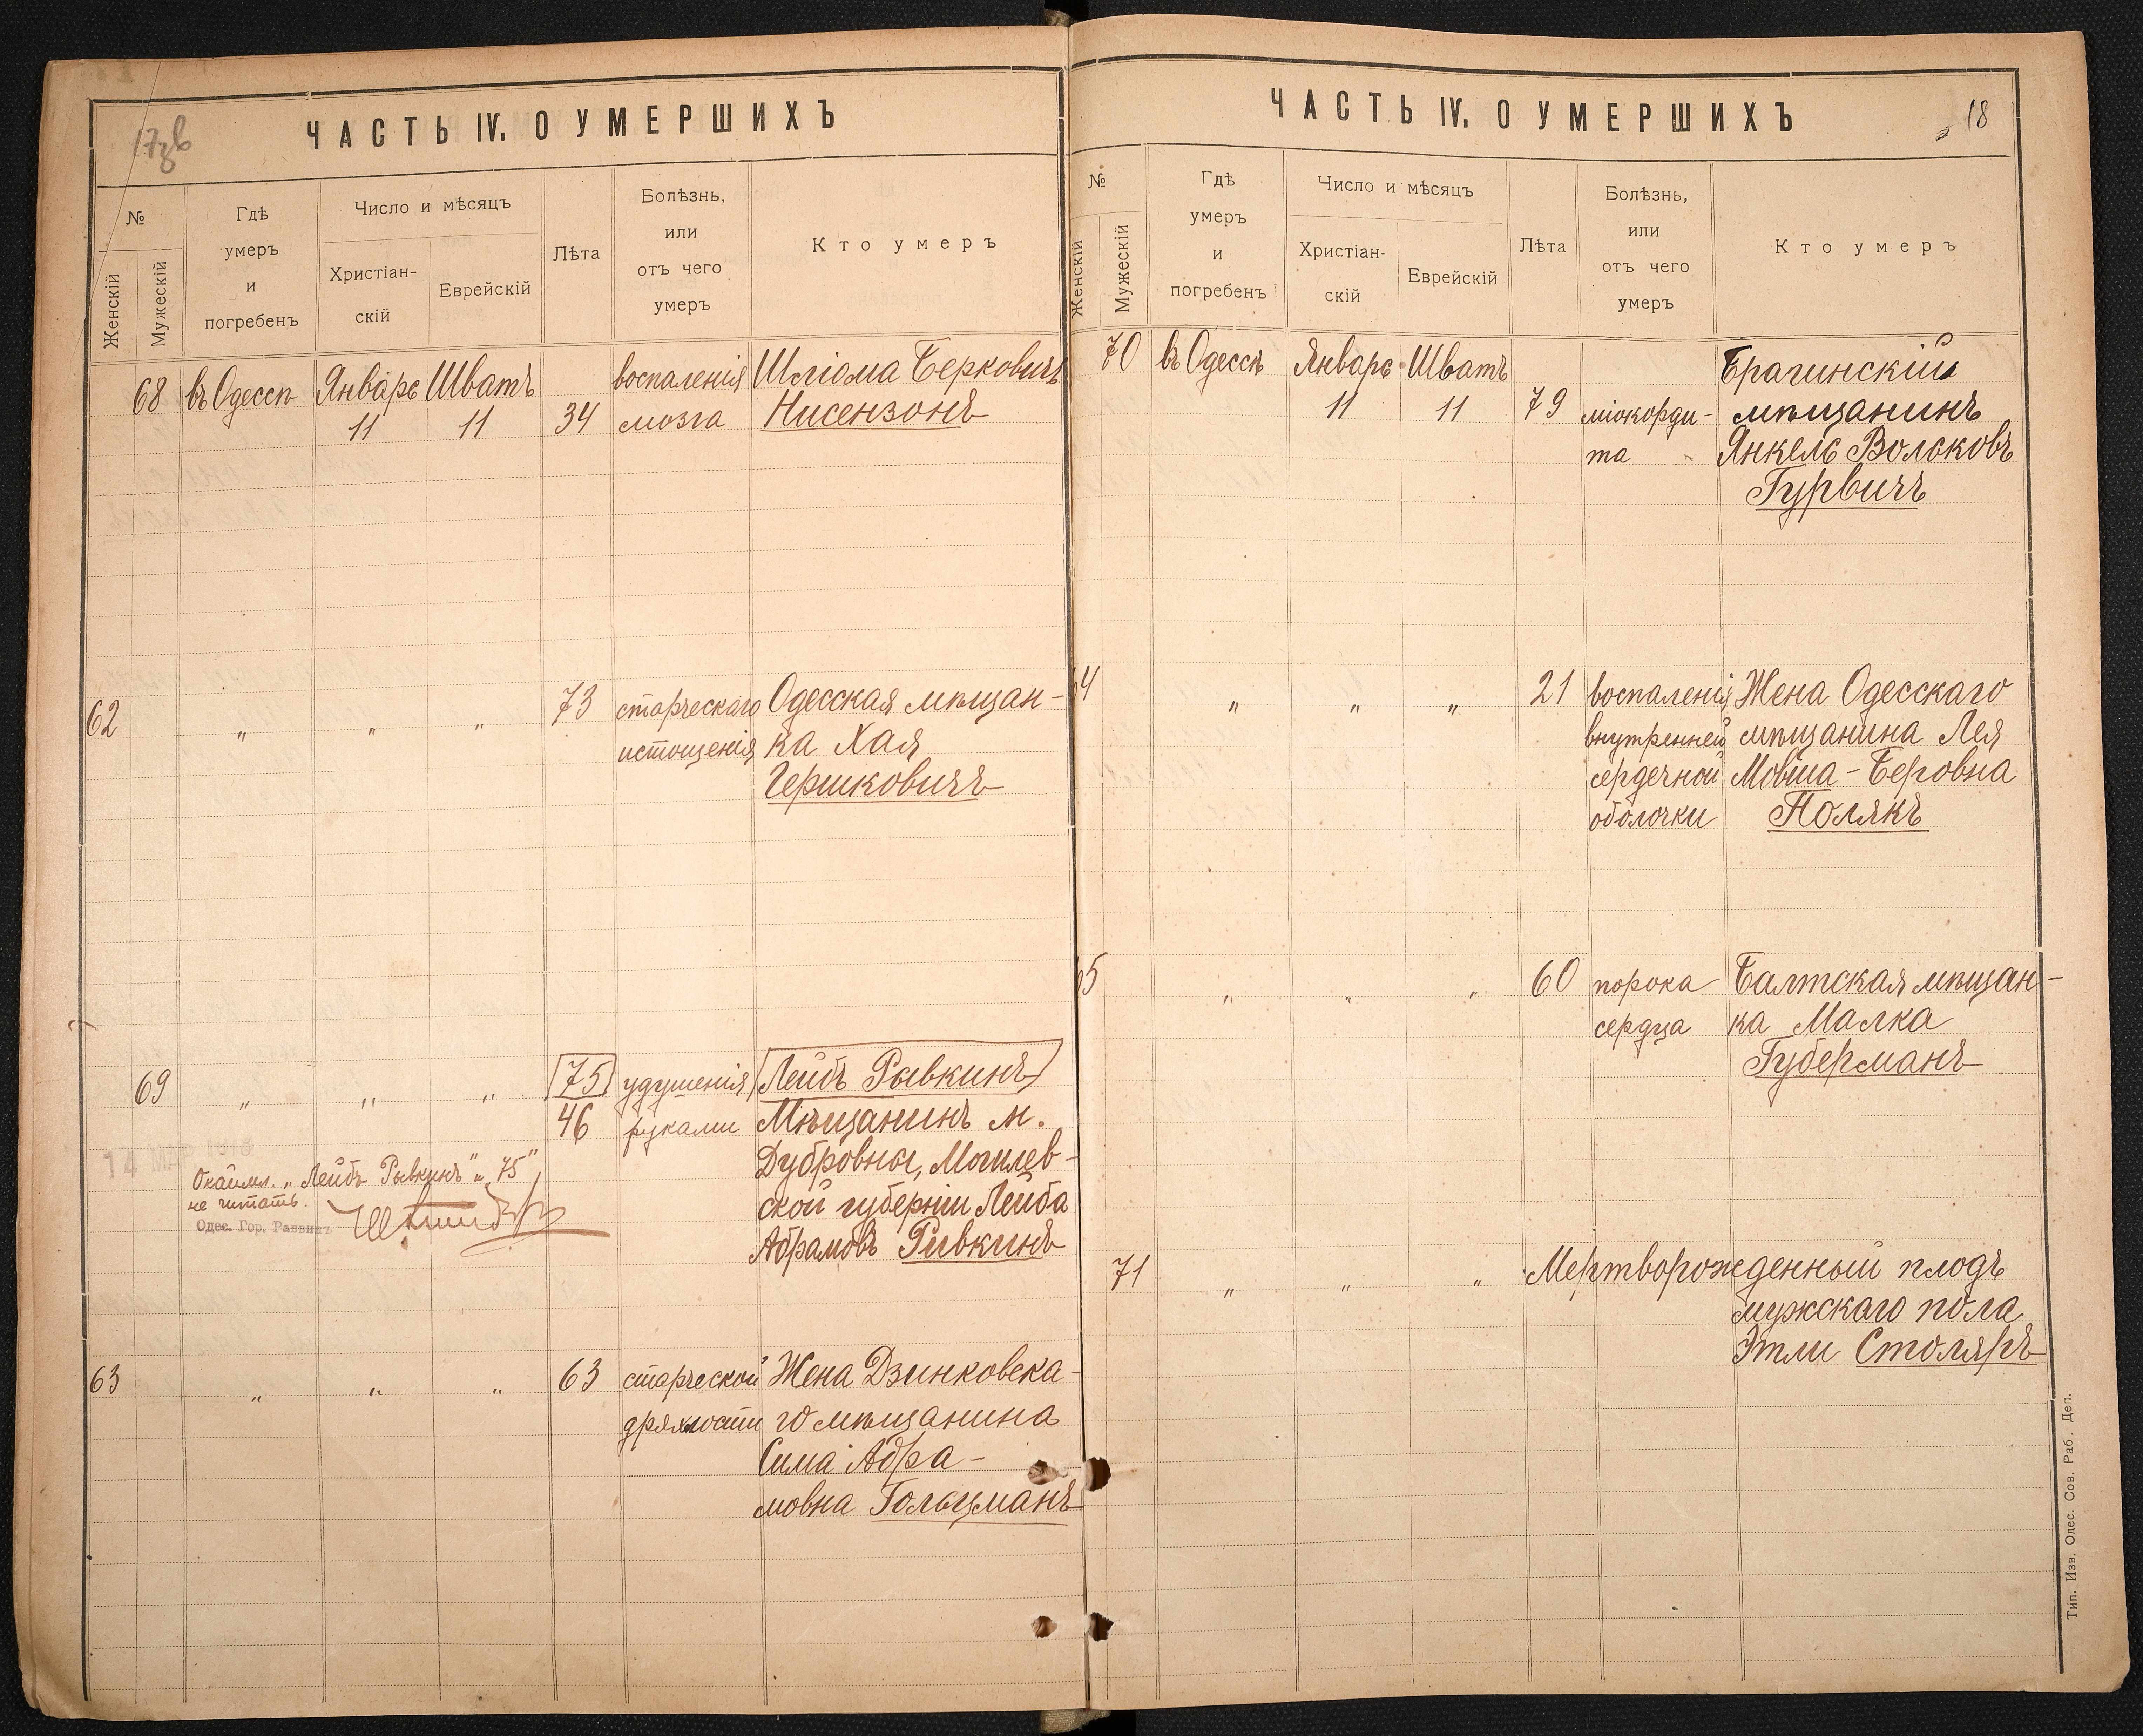 17об
ЧАСТЬ IV. О УМЕРШИХЪ
№
Женскій
Мужескій
Гдѣ
умеръ
и
погребенъ
Число и мѣсяцъ
Христіан-
скій
Еврейскій
Лѣта
Болѣзнь,
или
отъ чего
умеръ
Кто умеръ
68 въ Одессѣ Январь Шватъ воспаленія Шліома Берковичъ
11 11 34 мозга Нисензонъ
62 " " " 73 старческаго Одесская мѣщан-
истощенія ка Хая
Гершковичъ
69 " " " 75 удушенія Лейбъ Рывкинъ
46 руками Мѣщанинъ м.
Дубровны, Могилев-
ской губерніи Лейба
Абрамовъ Ривкинъ
Окаймл. „Лейбъ Рывкинъ" и „75"
не читать.
Одес. Гор. Раввинъ
63 " " " 63 старческой Жена Дзинковска-
дряхлости го мѣщанина
Сима Абра-
мовна Гольцманъ
ЧАСТЬ IV. О УМЕРШИХЪ
18
№
Женскій
Мужескій
Гдѣ
умеръ
и
погребенъ
Число и мѣсяцъ
Христіан-
скій
Еврейскій
Лѣта
Болѣзнь,
или
отъ чего
умеръ
Кто умеръ
70 въ Одессѣ Январь Шватъ Брагинскій
11 11 79 міокорди- мѣщанинъ
та Янкель Вольковъ
Гурвичъ
64 " " " 21 воспаленія Жена Одесскаго
внутренней мѣщанина Лея
сердечной Мовша-Беровна
оболочки Полякъ
65 " " " 60 порока Балтская мѣщан-
сердца ка Малка
Губерманъ
71 " " " Мертворожденный плодъ
мужскаго пола
Этли Столяръ
Тип. Изв. Одес. Сов. Раб. Деп.